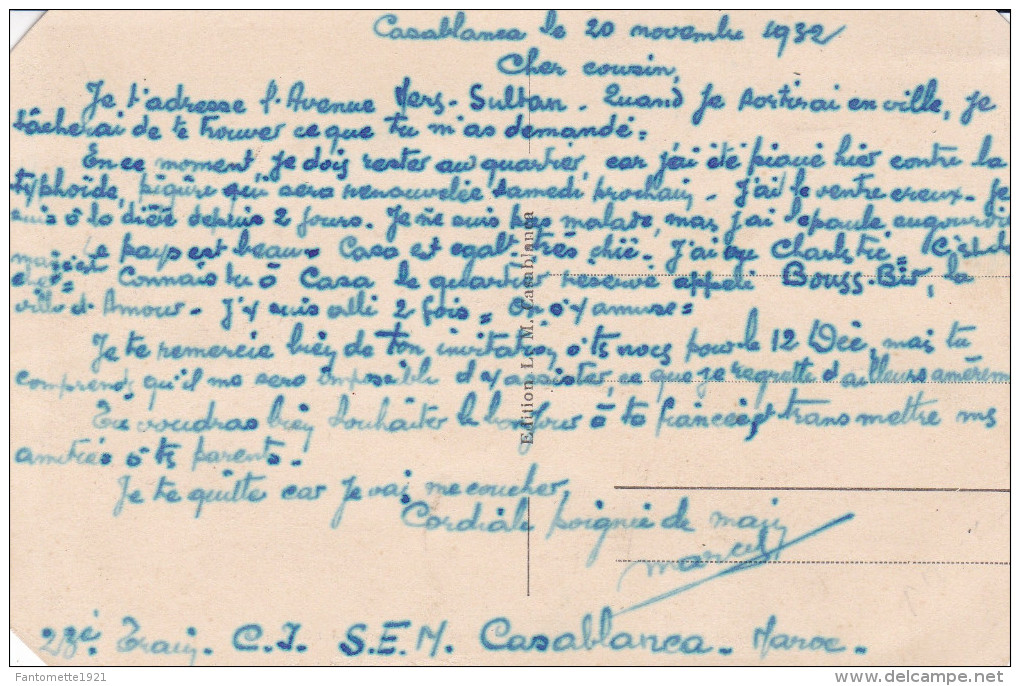 Casablanca le 20 novembre 1932
Cher cousin,
Je t'adresse l'Avenue Mers-Sultan. Quand je sortirai en ville, je
tâcherai de te trouver ce que tu m'as demandé.
En ce moment, je dois rester au quartier, car j'ai été piqué hier contre la
typhoïde, piqûre qui sera renouvelée samedi prochain. J'ai le ventre creux. Je
suis à la diète depuis 2 jours. Je ne suis pas malade, mais j'ai l'épaule engourdie
Le pays est beau. Casa est egalt très chic. J'ai vu
mais c'est
cher = Connais tu à Casa le quartier réservé appelé Bouss-Bir, la
ville d'Amour. J'y suis allé 2 fois = On s'y amuse =
Je te remercie bien de ton invitation à tes noces pour le 12 Déc, mais tu
comprends qu'il me sera impossible d'y assister, ce que je regrette d'ailleurs amèrem
Tu voudras bien souhaiter le bonjour à ta fiancée et transmettre mes
amitiés à tes parents.
Je te quitte car je vais me coucher.
Cordiale poignée de main
Marcel
23e Train. C.J. S.E.M. Casablanca. Maroc.
Edition L. M. Casablanca
Fantomette1921
delcampe.net